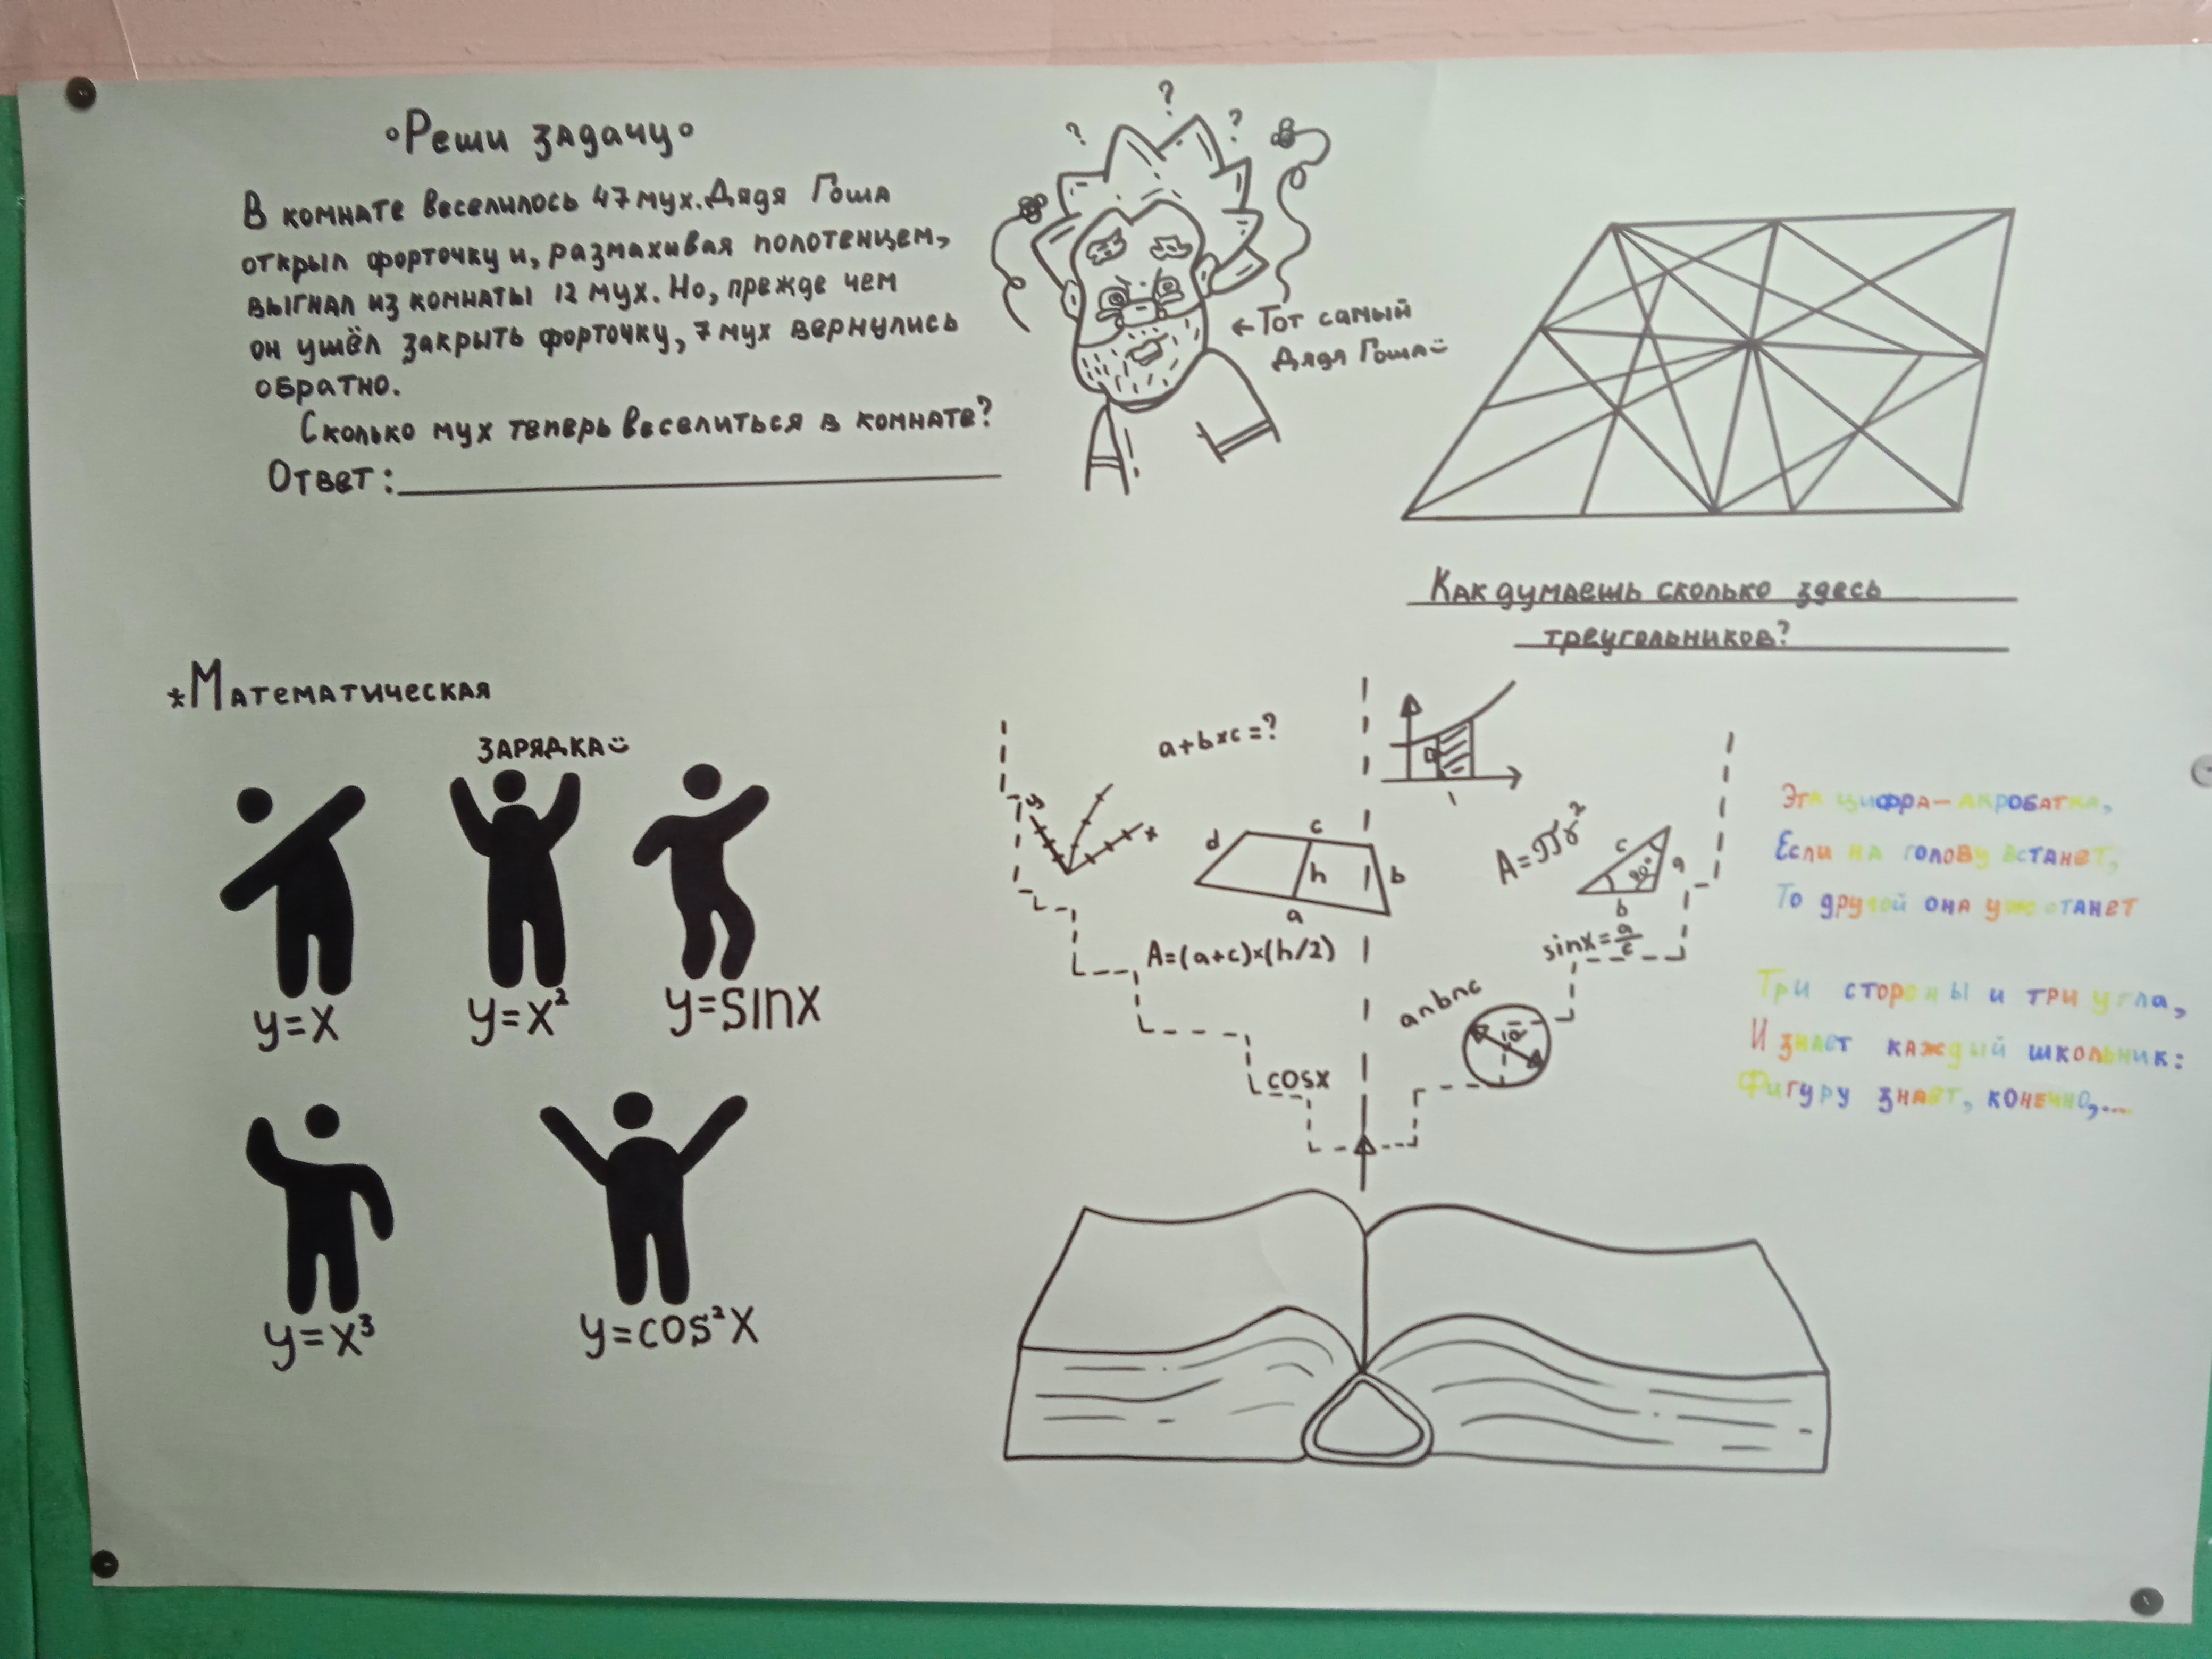 °Реши задачу°
В комнате веселилось 47 мух. Дядя Гоша
открыл форточку и, размахивая полотенцем,
выгнал из комнаты 12 мух. Но, прежде чем
он ушёл закрыть форточку, 7 мух вернулись
обратно.
Сколько мух теперь веселиться в комнате?
Ответ:
? ? ?
←Тот самый
Дядя Гоша
Как думаешь сколько здесь
треугольников?
*Математическая
зарядка
y=x
y=x²
y=sinx
y=x³
y=cos²x
a+b×c=?
y
x
d
c
h
b
a
A=(a+c)×(h/2)
cosx
1
A=πr²
c
a
90°
b
sinx=a/c
a∩b∩c
Эта цифра – акробатка,
Если на голову встанет,
То другой она уже станет
Три стороны и три угла,
И знает каждый школьник:
Фигуру знает, конечно,...